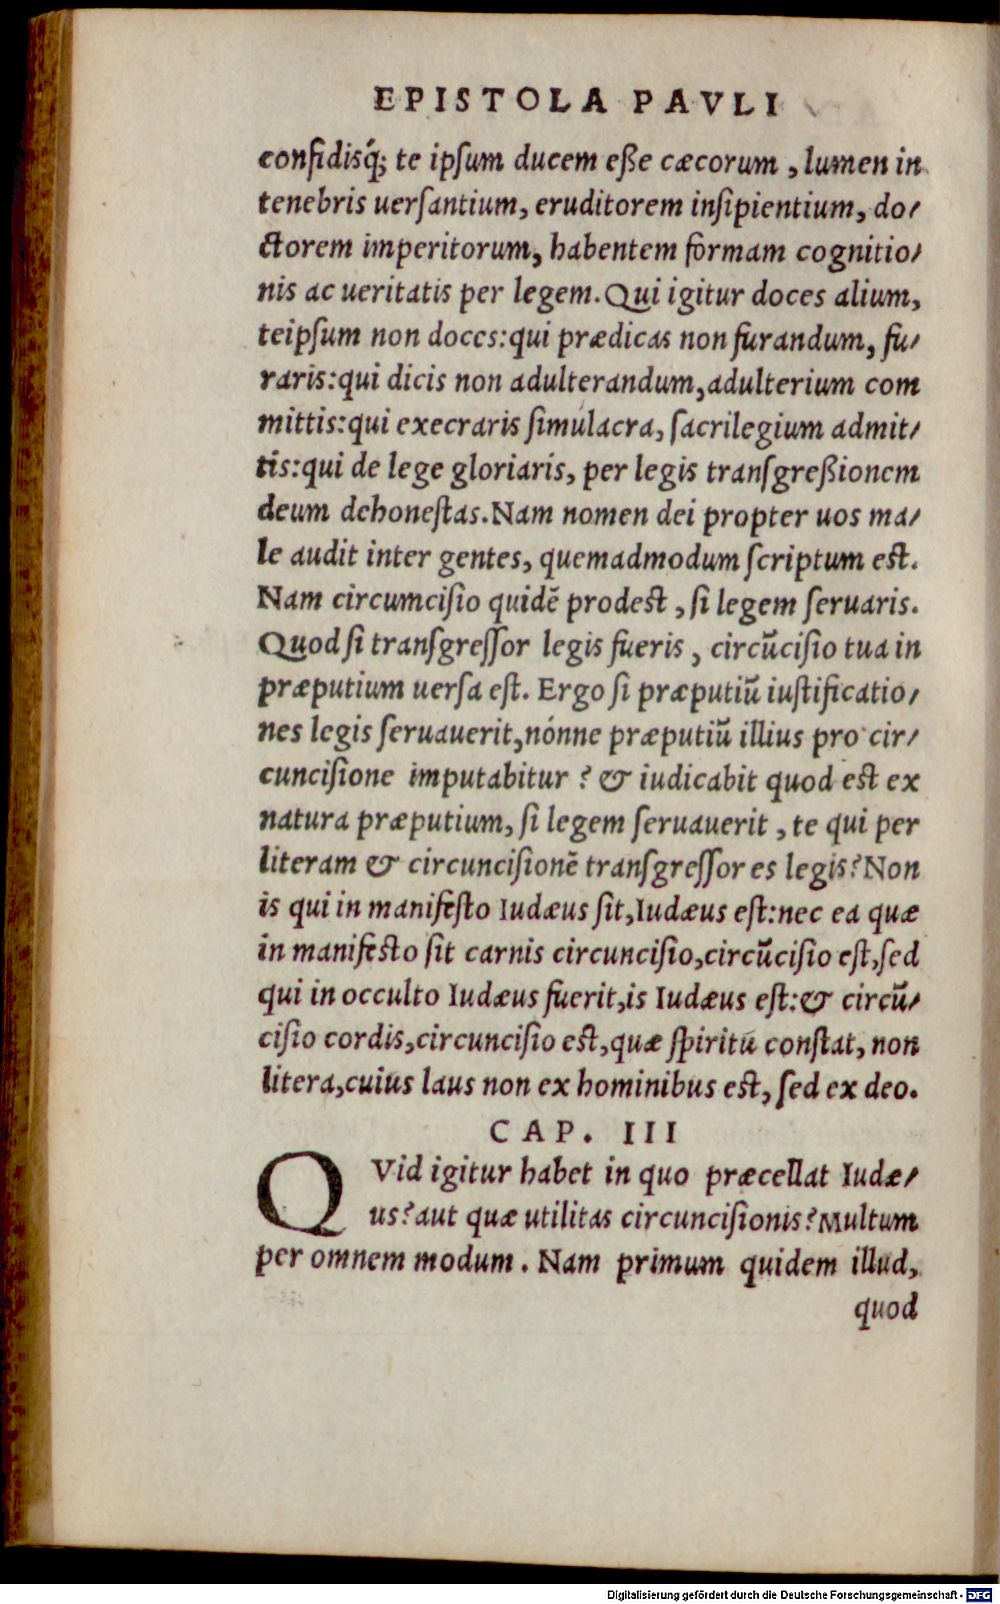 EPISTOLA PAVLI
confidisq́; te ipſum ducem eße cæcorum , lumen in
tenebris uerſantium, eruditorem inſipientium, do⸗
ctorem imperitorum, habentem formam cognitio⸗
nis ac ueritatis per legem. Qui igitur doces alium,
teipſum non doces: qui prædicas non furandum, fu⸗
raris: qui dicis non adulterandum, adulterium com
mittis: qui execraris ſimulacra, ſacrilegium admit⸗
tis: qui de lege gloriaris, per legis tranſgreßionem
deum dehoneſtas. Nam nomen dei propter uos ma⸗
le audit inter gentes, quemadmodum ſcriptum eſt.
Nam circumciſio quidē prodest , ſi legem ſeruaris.
Quod ſi tranſgreſſor legis fueris , circūciſio tua in
præputium uerſa eſt. Ergo ſi præputiū iuſtificatio⸗
nes legis ſeruauerit, nónne præputiū illius pro cir⸗
cunciſione imputabitur ? & iudicabit quod est ex
natura præputium, ſi legem ſeruauerit , te qui per
literam & circunciſionē tranſgreſſor es legis? Non
is qui in manifeſto Iudæus ſit, Iudæus eſt: nec ea quæ
in manifesto ſit carnis circunciſio, circūciſio eſt, ſed
qui in occulto Iudæus fuerit, is Iudæus eſt: & circū⸗
ciſio cordis, circunciſio est, quæ ſpiritu conſtat, non
litera, cuius laus non ex hominibus est, ſed ex deo.
CAP. III
QVid igitur habet in quo præcellat Iudæ⸗
us? aut quæ utilitas circunciſionis? Multum
per omnem modum . Nam primum quidem illud,
quod
Digitalisierung gefördert durch die Deutsche Forschungsgemeinschaft - DFG